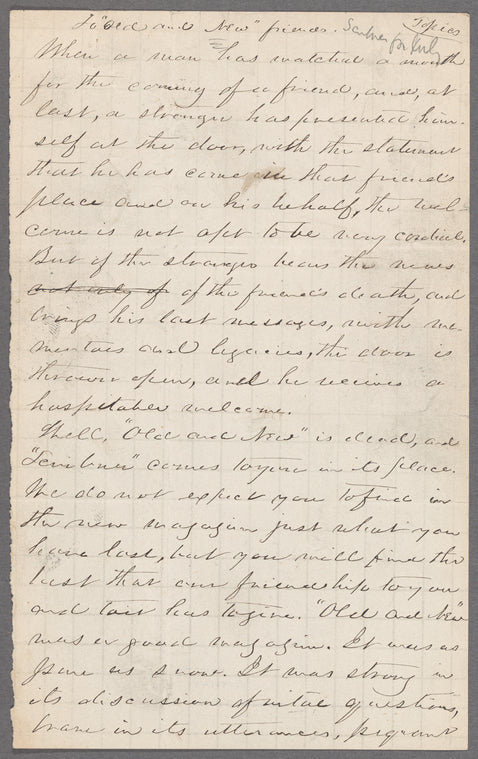 To "Old and New" friends.
Topics
Scribner for July
When a man has watched a month
for the coming of a friend, and, at
last, a stranger has presented him-
self at the door, with the statement
that he has come in that friend's
place and on his behalf, the wel-
come is not apt to be very cordial.
But if the stranger bears the news
not only of of the friend's death, and
brings his last messages, with mo-
mentoes and legacies, the door is
thrown open, and he receives a
hospitable welcome.
Well, "Old and New" is dead, and
"Scribner" comes to you in its place.
We do not expect you to find in
the new magazine just what you
have lost, but you will find the
best that our friendship to you
and to it has to give. "Old and New"
was a good magazine. It was as
pure as snow. It was strong in
its discussion of vital questions,
brave in its utterances, piquant